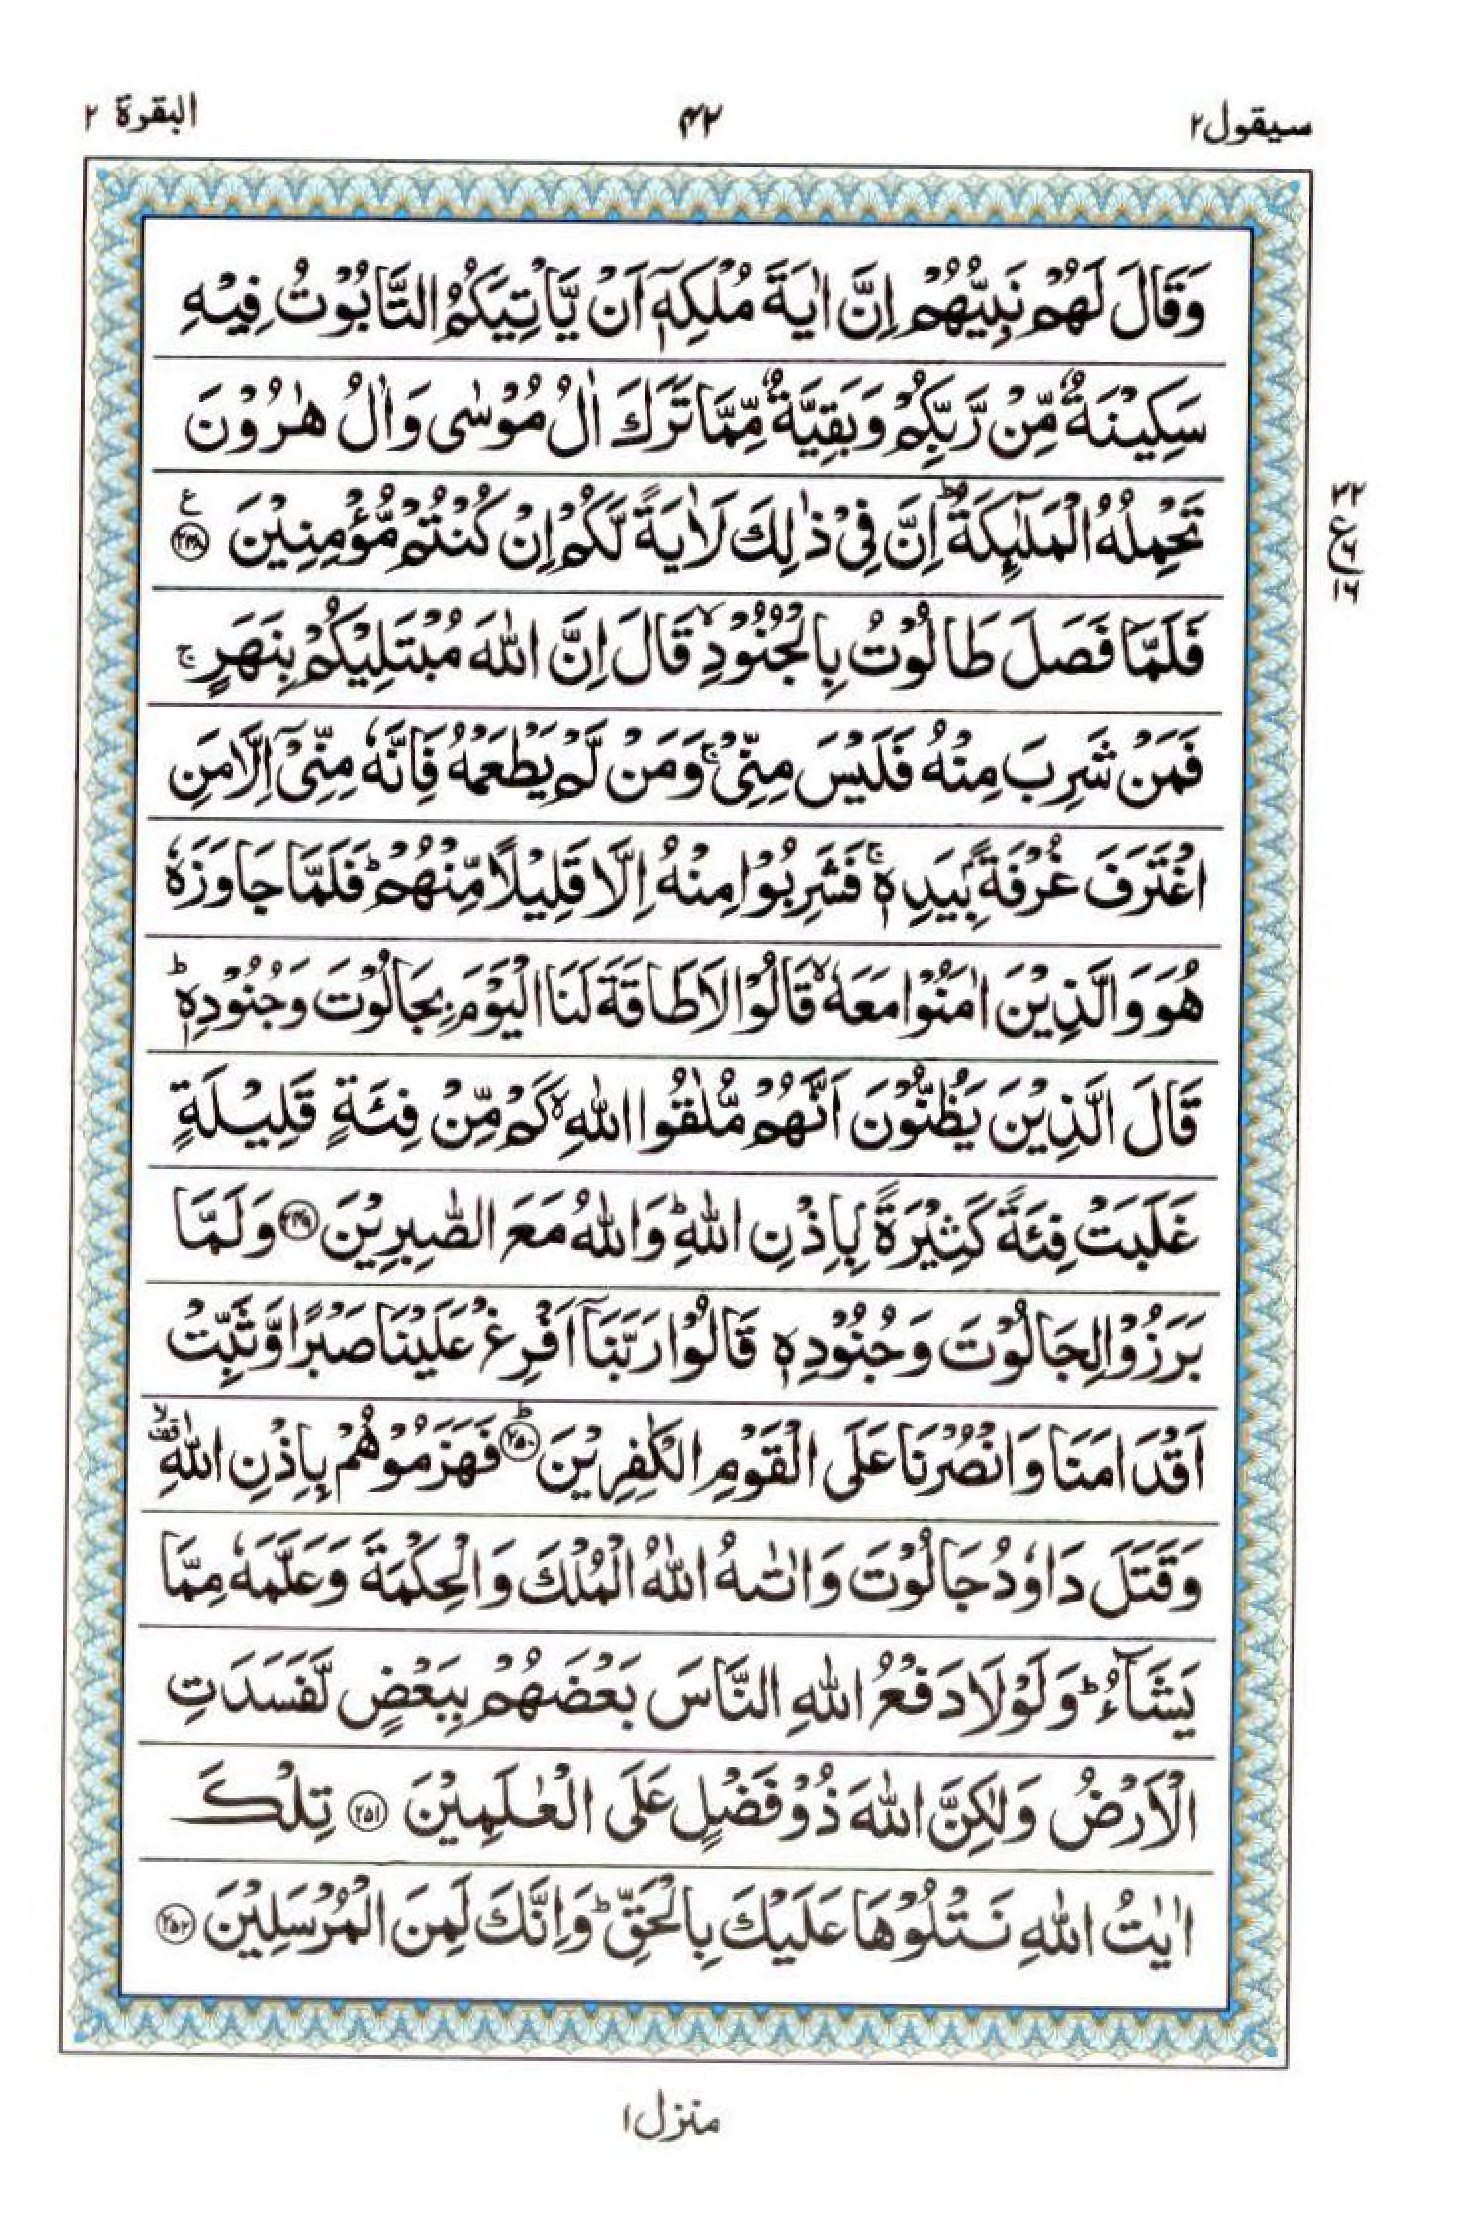 سيقول٢ ٤٢ البقرة ٢
وَقَالَ لَهُمْ نَبِيُّهُمْ اِنَّ اٰيَةَ مُلْكِهٖۤ اَنْ يَّاْتِيَكُمُ التَّابُوْتُ فِيْهِ
سَكِيْنَةٌ مِّنْ رَّبِّكُمْ وَبَقِيَّةٌ مِّمَّا تَرَكَ اٰلُ مُوْسٰى وَاٰلُ هٰرُوْنَ
تَحْمِلُهُ الْمَلٰٓئِكَةُ ؕ اِنَّ فِيْ ذٰلِكَ لَاٰيَةً لَّكُمْ اِنْ كُنْتُمْ مُّؤْمِنِيْنَ ﴿٢٤٨﴾ ع
٣٢
ع ٦
١٦
فَلَمَّا فَصَلَ طَالُوْتُ بِالْجُنُوْدِ ۙ قَالَ اِنَّ اللّٰهَ مُبْتَلِيْكُمْ بِنَهَرٍ ۚ
فَمَنْ شَرِبَ مِنْهُ فَلَيْسَ مِنِّيْ ۚ وَمَنْ لَّمْ يَطْعَمْهُ فَاِنَّهٗ مِنِّيْۤ اِلَّا مَنِ
اغْتَرَفَ غُرْفَةًۢ بِيَدِهٖ ۚ فَشَرِبُوْا مِنْهُ اِلَّا قَلِيْلًا مِّنْهُمْ ؕ فَلَمَّا جَاوَزَهٗ
هُوَ وَالَّذِيْنَ اٰمَنُوْا مَعَهٗ ۙ قَالُوْا لَا طَاقَةَ لَنَا الْيَوْمَ بِجَالُوْتَ وَجُنُوْدِهٖ ؕ
قَالَ الَّذِيْنَ يَظُنُّوْنَ اَنَّهُمْ مُّلٰقُوا اللّٰهِ ۙ كَمْ مِّنْ فِئَةٍ قَلِيْلَةٍ
غَلَبَتْ فِئَةً كَثِيْرَةًۢ بِاِذْنِ اللّٰهِ ؕ وَاللّٰهُ مَعَ الصّٰبِرِيْنَ ﴿٢٤٩﴾ وَلَمَّا
بَرَزُوْا لِجَالُوْتَ وَجُنُوْدِهٖ قَالُوْا رَبَّنَاۤ اَفْرِغْ عَلَيْنَا صَبْرًا وَّثَبِّتْ
اَقْدَامَنَا وَانْصُرْنَا عَلَى الْقَوْمِ الْكٰفِرِيْنَ ﴿٢٥٠﴾ؕ فَهَزَمُوْهُمْ بِاِذْنِ اللّٰهِ ۙ قف
وَقَتَلَ دَاوٗدُ جَالُوْتَ وَاٰتٰىهُ اللّٰهُ الْمُلْكَ وَالْحِكْمَةَ وَعَلَّمَهٗ مِمَّا
يَشَآءُ ؕ وَلَوْلَا دَفْعُ اللّٰهِ النَّاسَ بَعْضَهُمْ بِبَعْضٍ لَّفَسَدَتِ
الْاَرْضُ وَلٰكِنَّ اللّٰهَ ذُوْ فَضْلٍ عَلَى الْعٰلَمِيْنَ ﴿٢٥١﴾ تِلْكَ
اٰيٰتُ اللّٰهِ نَتْلُوْهَا عَلَيْكَ بِالْحَقِّ ؕ وَاِنَّكَ لَمِنَ الْمُرْسَلِيْنَ ﴿٢٥٢﴾
منزل١